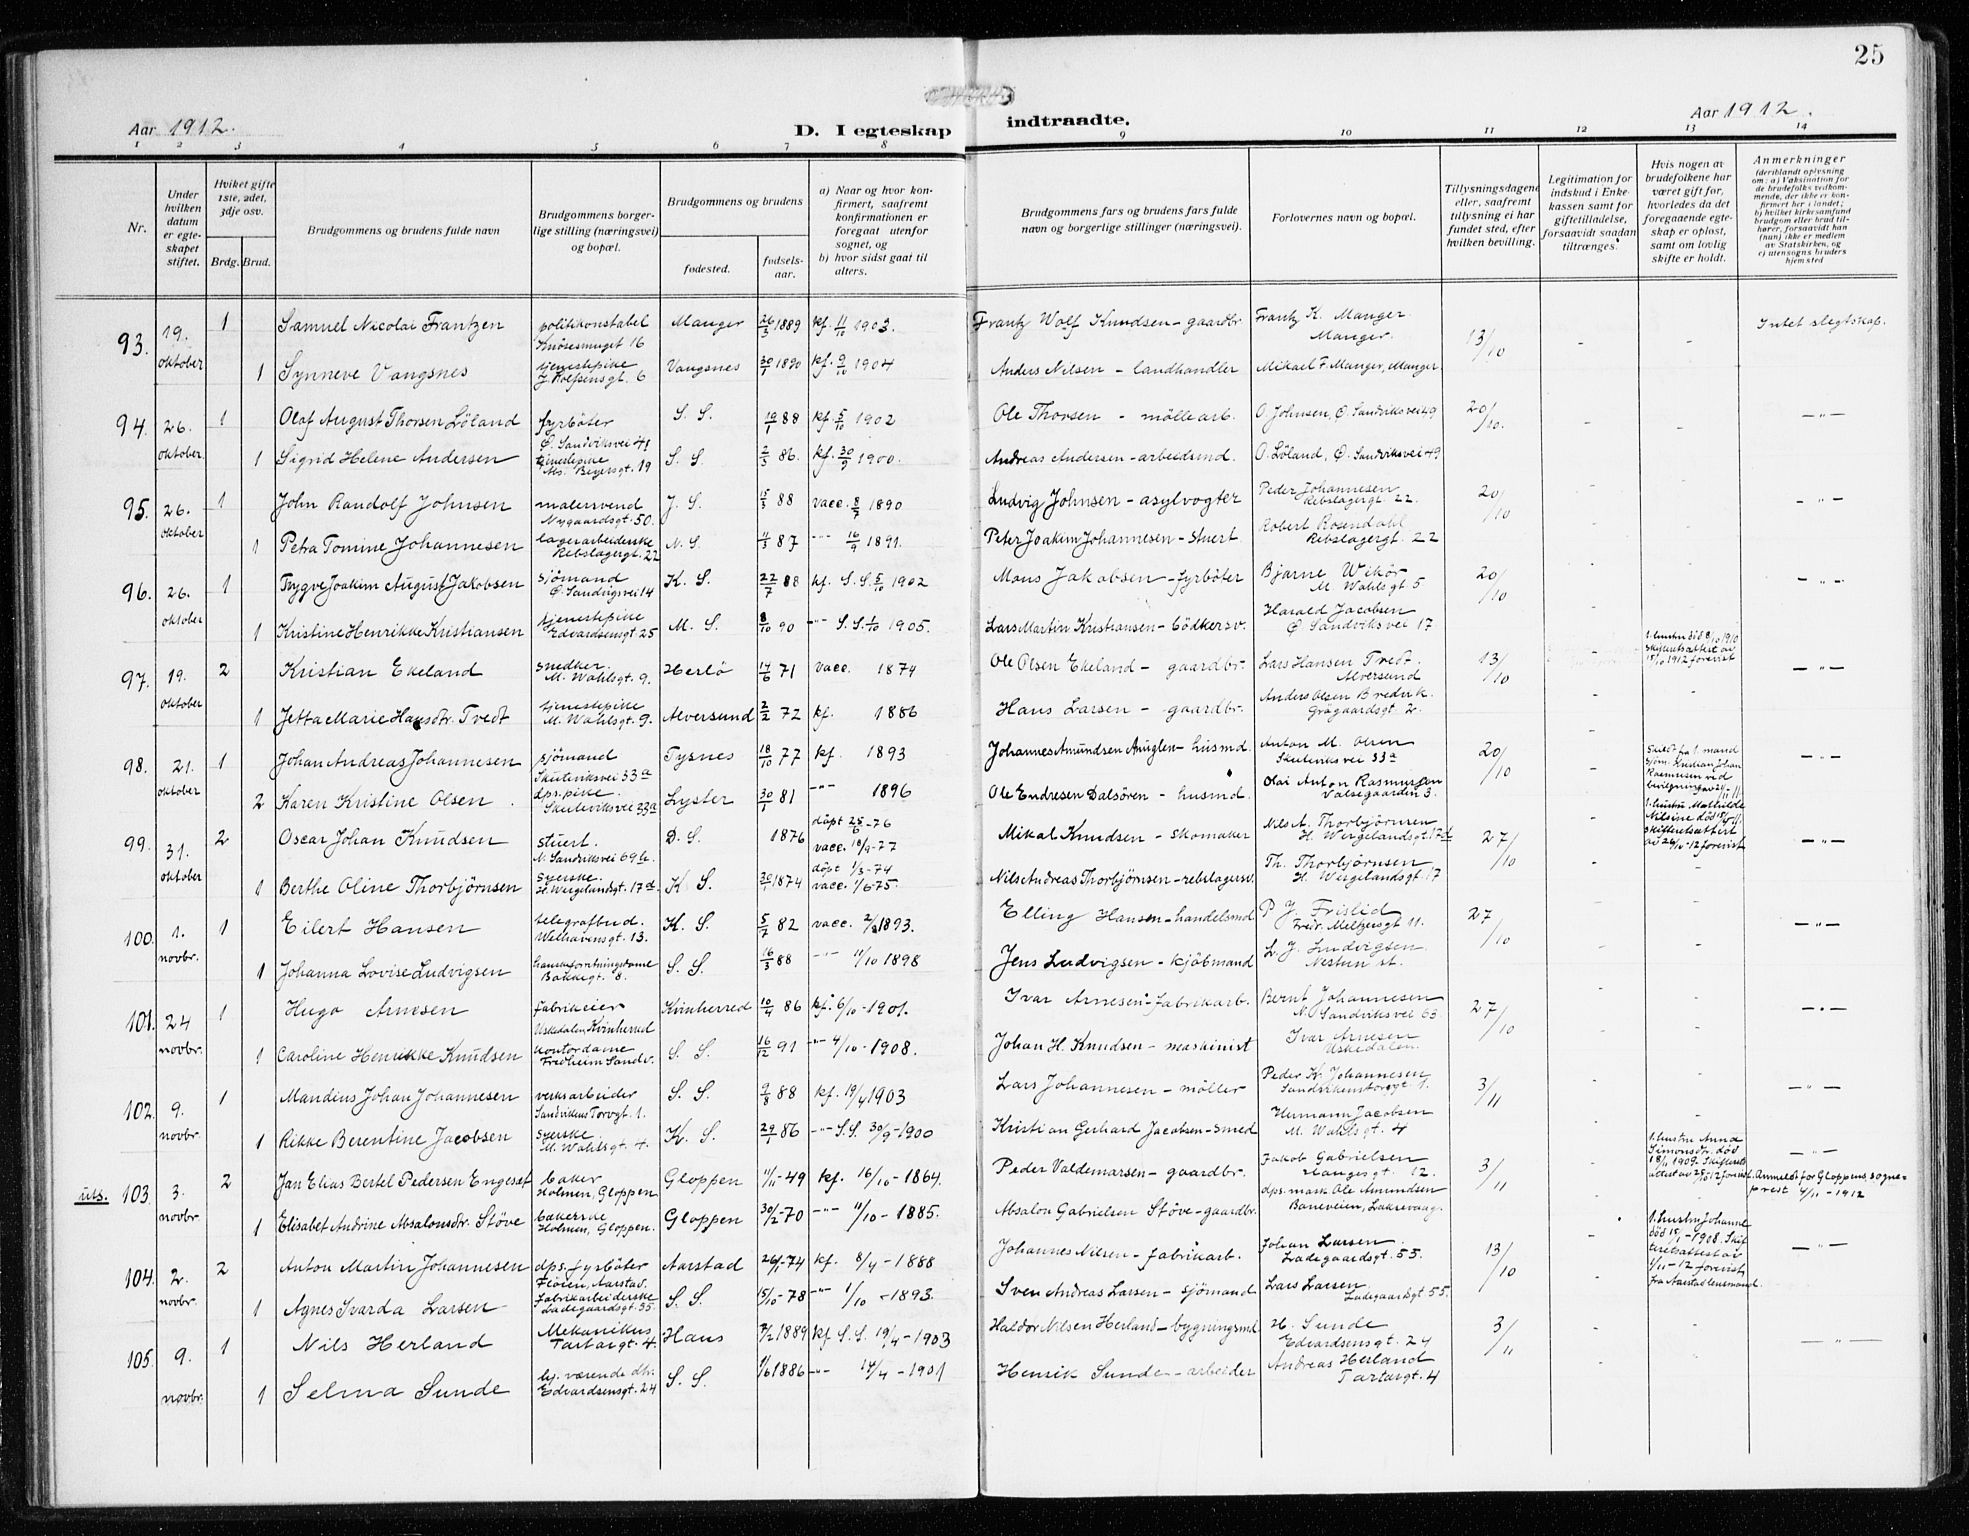 25
Aar 1912.
D. I egteskap indtraadte.
Aar 1912.
1 2 3 4 5 6 7 8 9 10 11 12 13 14
Nr.
Under hvilken datum er egteskapet stiftet.
Hvilket gifte 1ste, 2det, 3dje osv.
Brdg. Brud.
Brudgommens og brudens fulde navn
Brudgommens borgerlige stilling (næringsvei) og bopæl.
Brudgommens og brudens
fødested.
fødselsaar.
a) Naar og hvor konfirmert, saafremt konfirmationen er foregaat utenfor sognet, og
b) hvor sidst gaat til alters.
Brudgommens fars og brudens fars fulde navn og borgerlige stillinger (næringsvei).
Forlovernes navn og bopæl.
Tillysningsdagene eller, saafremt tillysning ei har fundet sted, efter hvilken bevilling.
Legitimation for indskud i Enkekassen samt for giftetilladelse, forsaavidt saadan tiltrænges.
Hvis nogen av brudefolkene har været gift før, hvorledes da det foregaaende egteskap er opløst, samt om lovlig skifte er holdt.
Anmerkninger (deriblandt oplysning om: a) Vaksination for de brudefolks vedkommende, der ikke er konfirmert her i landet; b) hvilket kirkesamfund brudgom eller brud tilhører, forsaavidt han (hun) ikke er medlem av Statskirken, og c) utensogns bruders hjemsted
93. 19. oktober 1 Samuel Nicolai Frantzen politikonstabel Smörsmuget 16 Manger 26/3 1889 kf. 11/10 1903. Frantz Wolf Knudsen - gaardbr. Frantz K. Manger Manger. 13/10 - - Intet slegtskap.
1 Synneve Vangsnes tjenestepike J. Röfsensgt. 6 Vangsnes 30/1 1890 kf. 9/10 1904 Anders Nilsen - landhandler Mikael F. Manger, Manger
94. 26. oktober 1 Olaf August Thorsen Löland fyrböter Ö. Sandviksvei 49 S. S. 19/1 88 kf. 5/10 1902 Ole Thorsen - möllearb. O. Johnsen, Ö. Sandviksvei 49 20/10. - - - " -
1 Sigrid Helene Andersen tjenestepike Ms. Beyersgt. 19 S. S. 2/3 86. kf. 30/9 1900. Andreas Andersen - arbeidsmd. O. Löland, Ö. Sandviksvei 49
95. 26. oktober 1 John Randolf Johnsen malersvend Nygaardsgt. 50. J. S. 15/3 88 vacc. 8/7 1890 Ludvig Johnsen - asylvogter Peder Johannesen Rebslagergt. 22. 20/10 - - - " -
1 Petra Tomine Johannesen lagerarbeiderske Rebslagergt. 22 N. S. 11/3 87 - " - 16/9 1891. Peter Joakim Johannesen - stuert Robert Rosendahl Rebslagergt. 22
96. 26. oktober 1 Trygve Joakim August Jakobsen sjömand Ö. Sandvigsvei 14 K. S. 22/7 88 kf. S. S. 5/10 1902 Mons Jakobsen - fyrböter Bjarne Wikör M. Wahlsgt 5 20/10 - - - " -
1 Kristine Henrikke Kristiansen tjenestepike Edvardsensgt. 25 M. S. 8/10 90 - " - S. S. 1/10 1905. Lars Martin Kristiansen - bödkersv. Harald Jacobsen Ö. Sandviksvei 17
97. 19. oktober 2 Kristian Ekeland snedker. M. Wahlsgt. 9. Herlö 14/6 71 vacc. 1874 Ole Olsen Ekeland - gaardbr. Lars Hansen Tvedt. Alversund 13/10 - 1. hustru död 8/10 1910 skifteretsattest av 15/10 1912 forevist - " -
1 Jetta Marie Hansdtr. Tvedt tjenestepike M. Wahlsgt. 9. Alversund 2/2 72 kf. 1886 Hans Larsen - gaardbr. Anders Olsen Bredvik. Grögaardsgt. 2.
98. 21. oktober 1 Johan Andreas Johannesen sjömand Skuteviksvei 33a Tysnes 18/10 77 kf. 1893 Johannes Amundsen Anuglen - husmd. Anton M. Olsen Skuteviksvei 33a 20/10 - skilt fra 1. mand sjöm. Kristian Johan Rasmussen ved bevilgning - " -
2 Karen Kristine Olsen. dps. pike. Skuteviksvei 33a Lyster 30/1 81 - " - 1896 Ole Endresen Dalsören - husmd. Olai Anton Rasmussen 3.
99. 31. oktober 2 Oscar Johan Knudsen stuert. N. Sandviksvei 69b. D. S. 1876 döpt 25/6-76 vacc. 18/9-77 Mikal Knudsen - skomaker Nils A. Thorbjörnsen H. Wergelandsgt. 17d 27/10 - 1. hustru Mathilde Nilsine död skifteretsattest av 26/10-12 forevist - " -
1 Berthe Oline Thorbjörnsen syerske. H. Wergelandsgt. 17d. K. S. 30/1 1874 döpt 1/3-74 vacc. 1/6-75. Nils Andreas Thorbjörnsen - rebslagersv. Th. Thorbjörnsen H. Wergelandsgt. 17
100. 1. novbr. 1 Eilert Hansen telegrafbud. Welhavensgt. 13. K. S. 5/7 82 vacc. 2/8 1893. Elling Hansen - handelsmd P. J. Frislid Fredr. Meltzersgt 11. 27/10 - - - " -
1 Johanna Lovise Ludvigsen Bakkegt. 8. S. S. 16/3 88 - " - 11/10 1898 Jens Ludvigsen - kjöbmand L. J. Ludvigsen Nestun st.
101. 24 novbr. 1 Hugo Arnesen fabrikeier Uskedalen, Kvinherred Kvinherred 10/4 86 kf. 6/10-1901. Ivar Arnesen - fabrikarb. Bernt Johannesen N. Sandviksvei 63. 27/10 - - - " -
1 Caroline Henrikke Knudsen kontordame Fredheim Sandv. S. S. 16/12 91 " 4/10-1908. Johan H. Knudsen - maskinist Ivar Arnesen Uskedalen.
102. 9. novbr. 1 Mandius Johan Johannesen verksarbeider Sandvikens Torvgt. 1. S. S. 9/8 88 kf. 19/4 1903 Lars Johannesen - möller Peder K. Johannesen Sandvikenstorvgt 1. 3/11 - - - " -
1 Rikke Berentine Jacobsen syerske. M. Wahlsgt. 4. K. S. 29/1 86 - " - S. S. 30/9-1900 Kristian Gerhard Jacobsen - smed Hermann Jacobsen M. Wahlsgt. 4
uts. 103. 3. novbr. 2 Jan Elias Bertel Pedersen Engeset baker Holmen, Gloppen Gloppen 11/11-49 kf. 16/10-1864. Peder Valdemarsen - gaardbr. Jakob Gabrielsen Haugesgt. 12. 3/11 - 1. hustru Anna Simonsdr. död 18/11 1909. Skifteretsattest av 25/10 12 forevist. - " - Anmeldt for Gloppens sogneprest 4/11-1912
1 Elisabet Andrine Absalonsdr. Støve bakerske Holmen, Gloppen. Gloppen 30/12-70 - " - 11/10-1885. Absalon Gabrielsen Støve - gaardbr. dps. mask. Ole Amundsen Baneveien, Laksevaag.
104. 2. novbr. 2 Anton Martin Johannesen dps. fyrböter Flöien, Aarstad. Aarstad 26/1-74 kf. 8/4-1888 Johannes Nilsen - fabrikarb. Johan Larsen. Ladegaardsgt. 55. 13/10 - 1. hustru Johanne död 15/1-1908. Skifteretsattest av 1/11-12 forevist fra Aarstad lensmand. - " -
1 Agnes Ivarda Larsen fabrikarbeiderske Ladegaardsgt. 55. S. S. 15/10-78 - " - 1/10-1893. Sven Andreas Larsen - sjömand Lars Larsen Ladegaardsgt 55.
105. 9. novbr. 1 Nils Herland Mekanikus, Tartargt. 4. Haus 7/2 1889 kf. S. S. 19/4-1903 Haldor Nilsen Herland - bygningsmd H. Sunde Edvardsensgt. 24 3/11 - - - " -
1 Selma Sunde hj. værende dtr. Edvardsensgt. 24 S. S. 1/6 1886 - " - 14/4-1901 Henrik Sunde - arbeider Andreas Herland Tartargt. 4